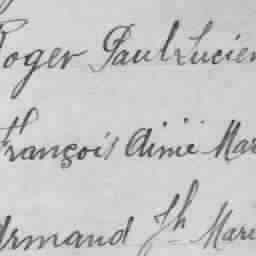 Roger Paul Lucien
François Aimé Mar
Armand Jh Mari